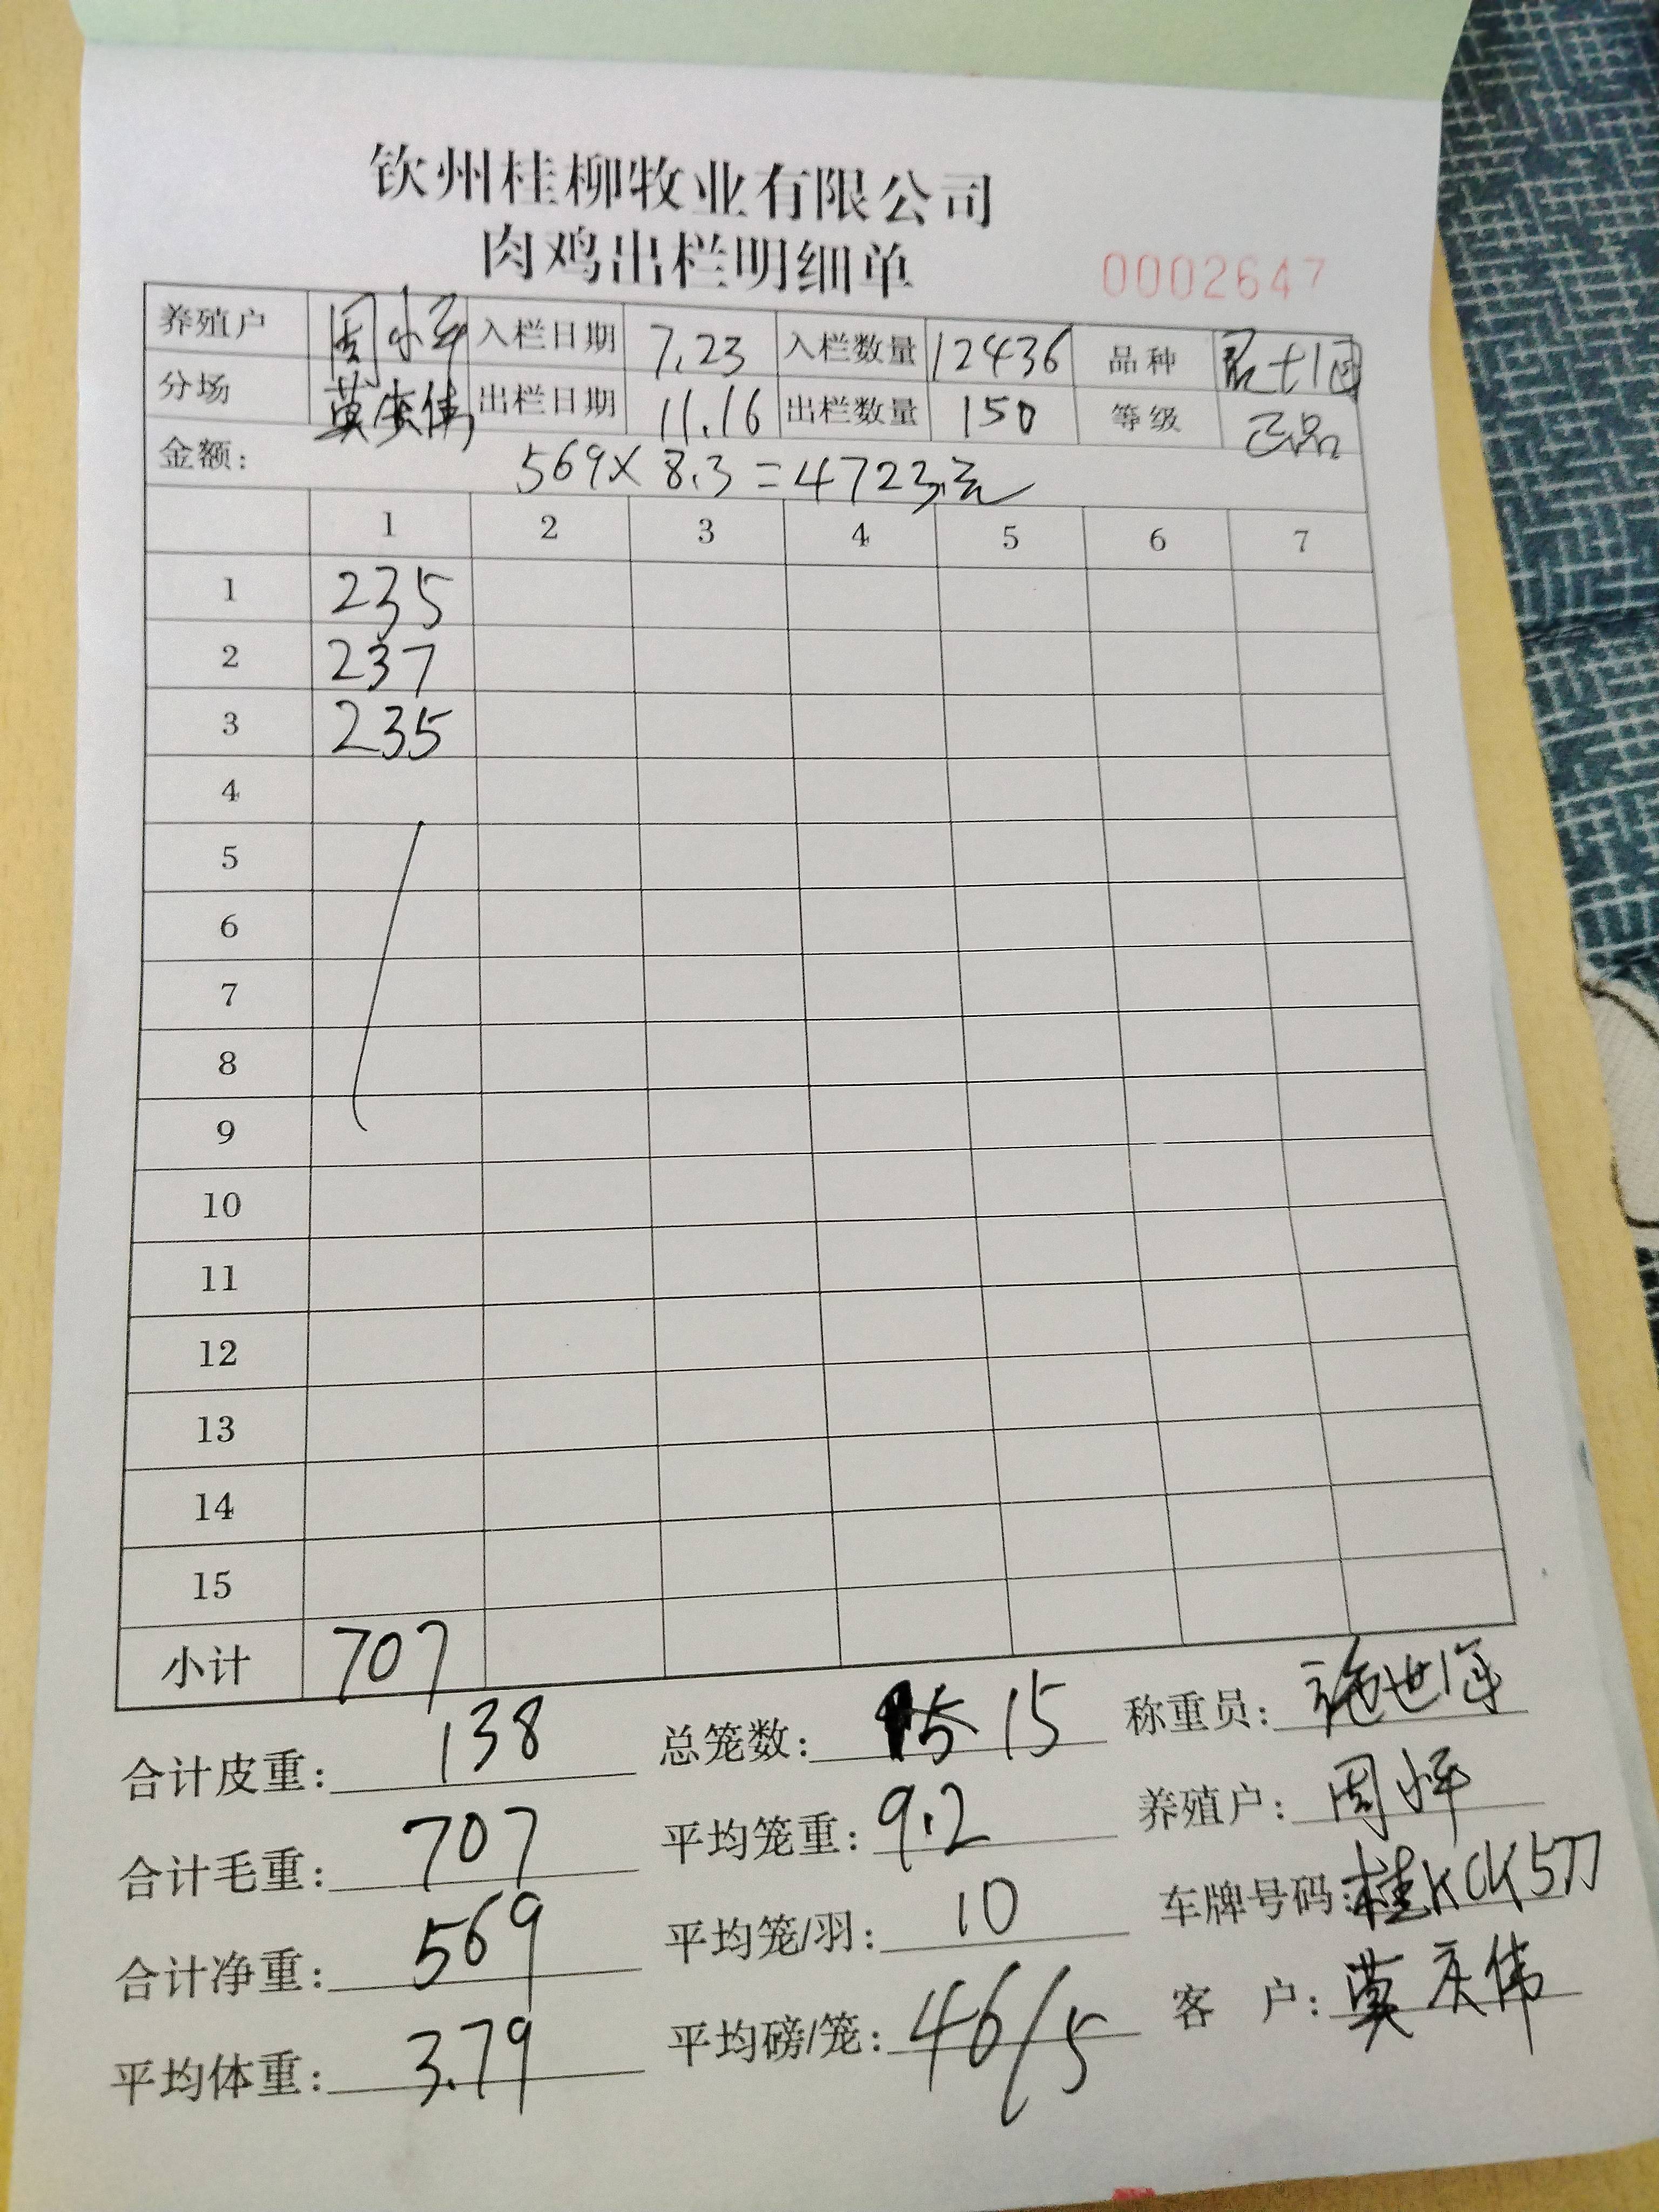 钦州桂柳牧业有限公司
肉鸡出栏明细单
0002647
养殖户 周 入栏日期 7.23 入栏数量 12436 品种
分场 莫庆伟 出栏日期 11.16 出栏数量 150 等级 正品
金额: 569×8.3=4723元
1 2 3 4 5 6 7
1 235
2 237
3 235
4
5
6
7
8
9
10
11
12
13
14
15
小计 707
合计皮重: 138 总笼数: 15 15 称重员: 施世
合计毛重: 707 平均笼重: 9.2 养殖户: 周
合计净重: 569 平均笼/羽: 10 车牌号码: 桂KCK577
平均体重: 3.79 平均磅/笼: 46/5 客 户: 莫庆伟